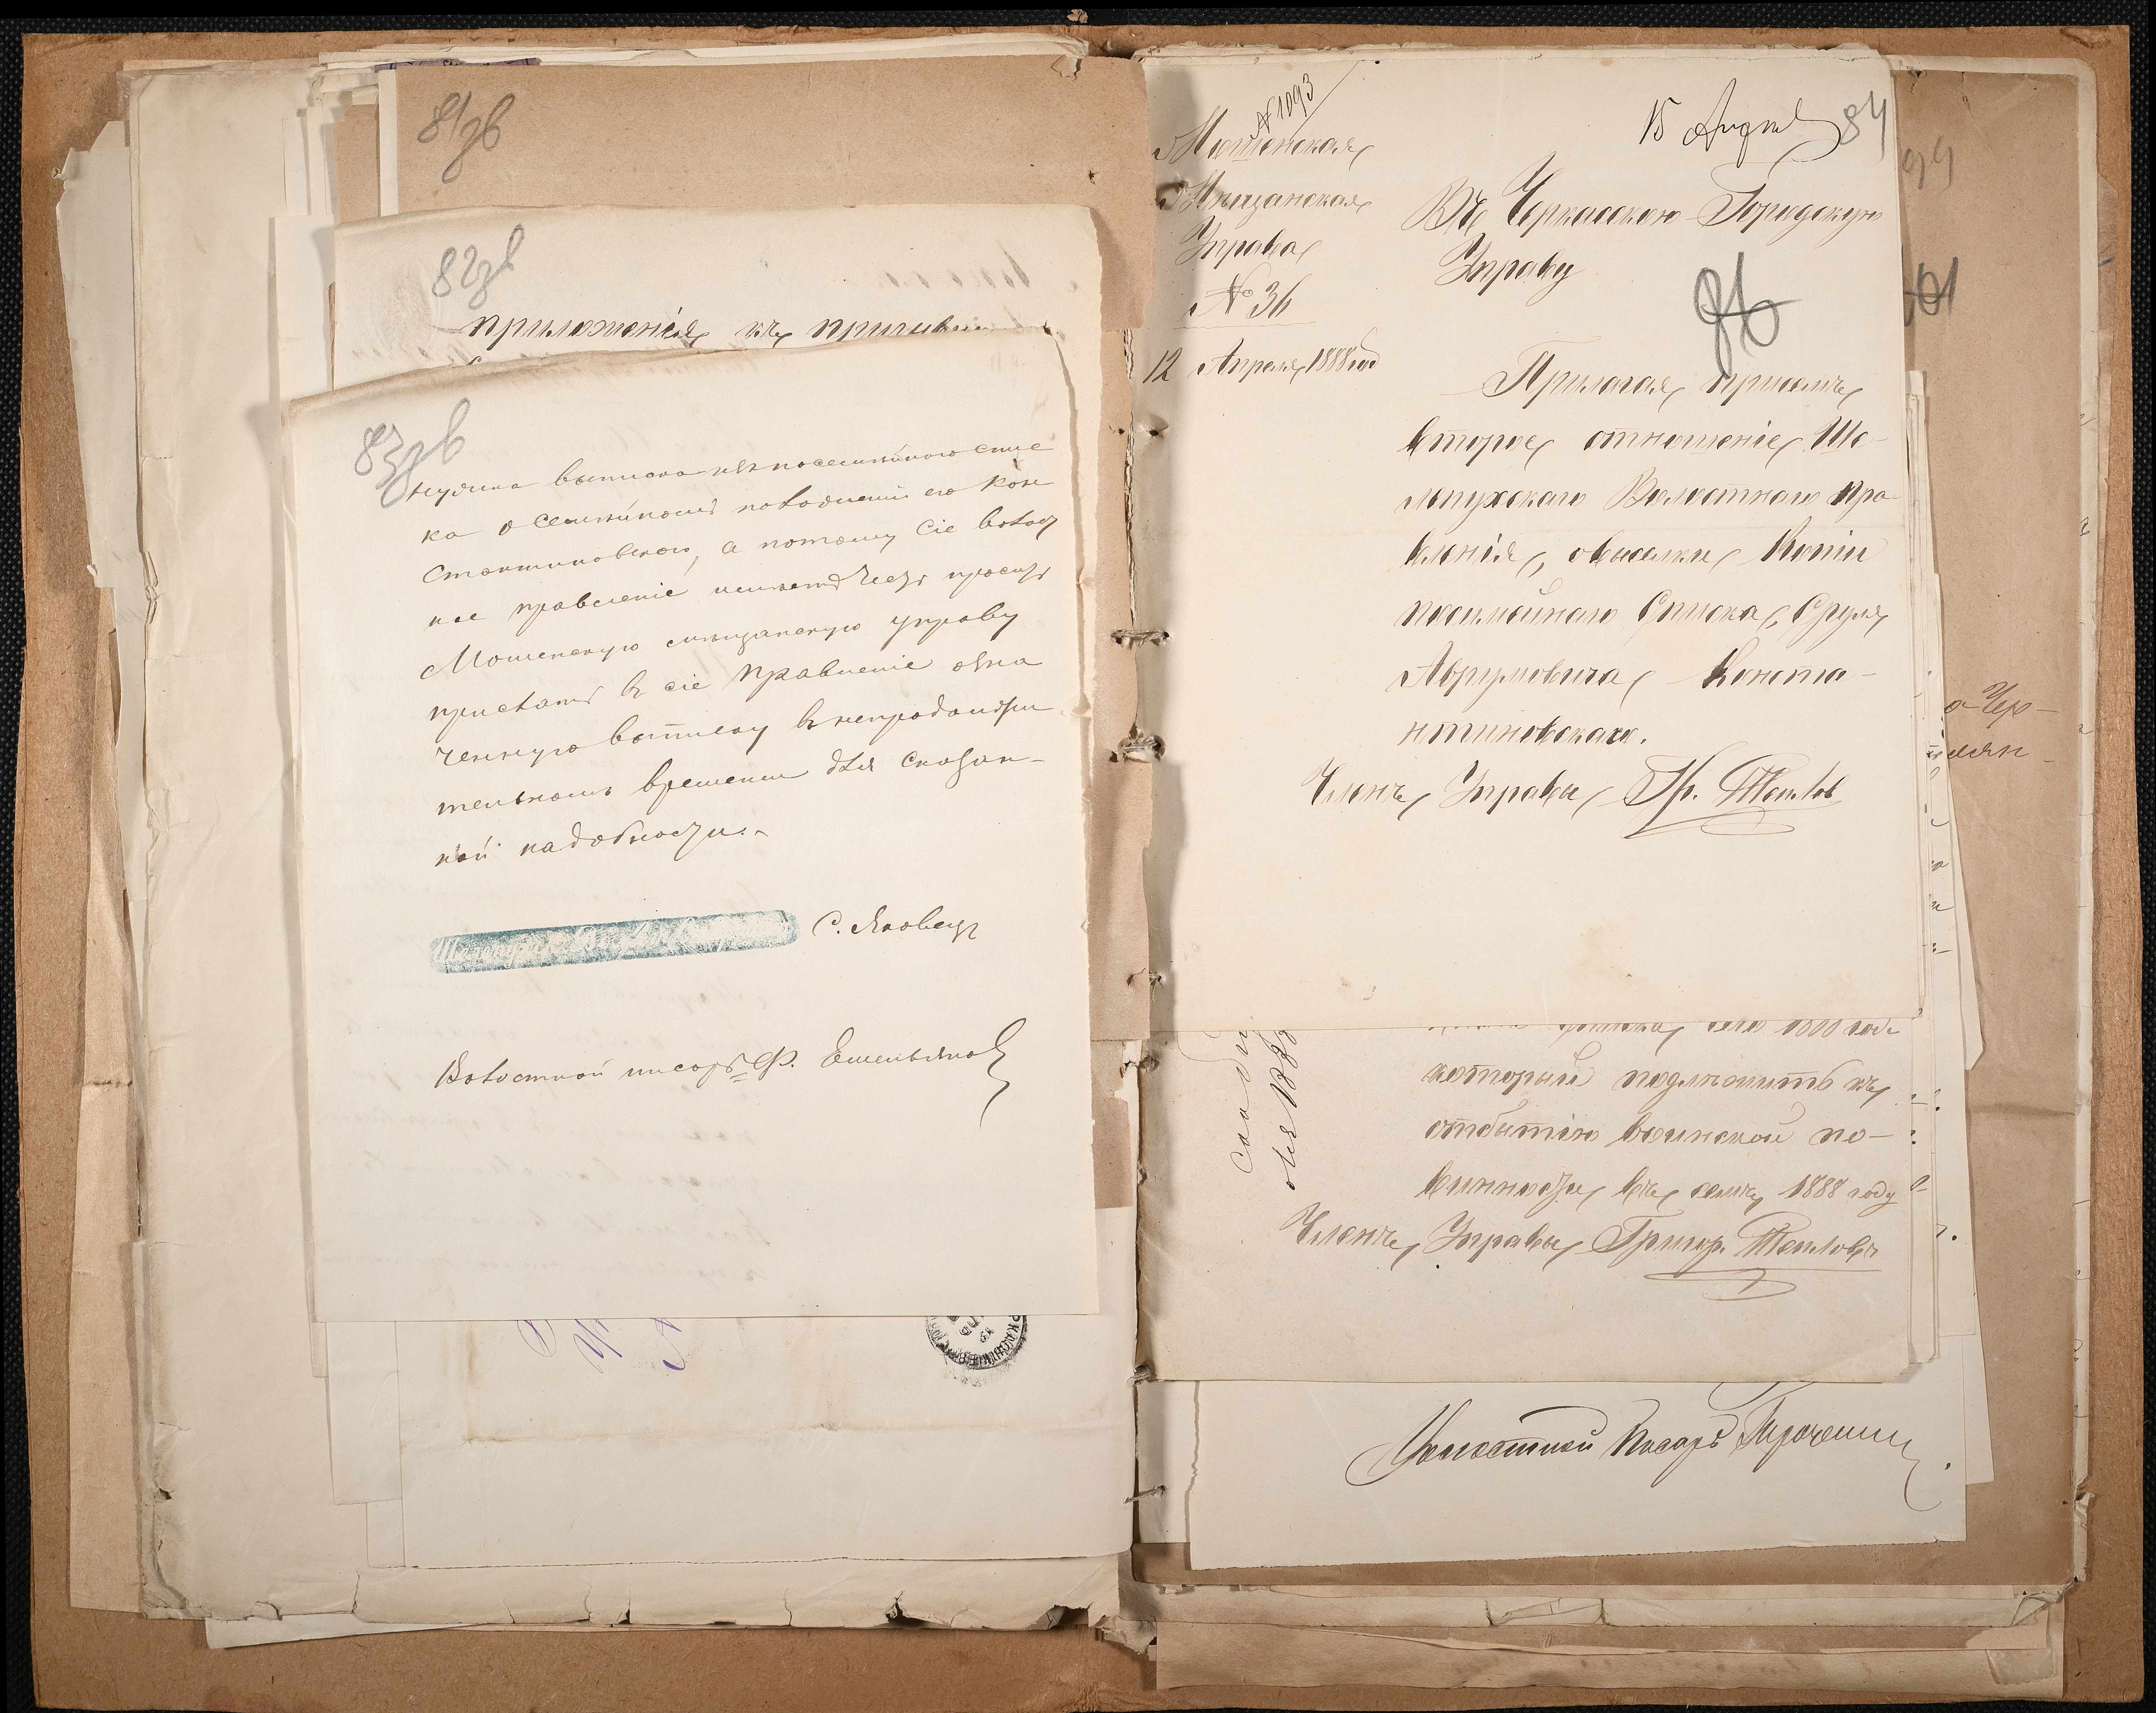 81зв
82зв
приложенія къ призывн
83зв
нужна выписка изъ посемѣйнаго спис
ка о семѣйномъ положеніи его Кон
стантиновскаго, а потому сіе волост
ное правленіе имѣетъ честь просить
Мошенскую мѣщанскую управу
прислать въ сіе правленіе озна
ченную выписку въ непродолжи
тельномъ времени для сказан-
ной надобности.-
С. Яковецъ
Волостной писарь Ф. Емельянов
№ 1093
15 Апрел 84
Мошенская
Мѣщанская
Управа
№ 36
12 Апреля 1888 год
Въ Черкасскою Городскую
Управу
Прилагая присемъ
второе отношеніе Ше-
лепухскаго Волостнаго Пра-
вленія, овысылки Копіи
посимейнаго Списка, Сруля
Аврумовича Конста-
нтиновскаго.
Членъ Управы Гр. Теплов
который подлежитъ къ
отбытію воинской по-
винности въ семъ 1888 году
Членъ Управы Григор. Тепловъ
Волостной Писарь
94
а Чер-